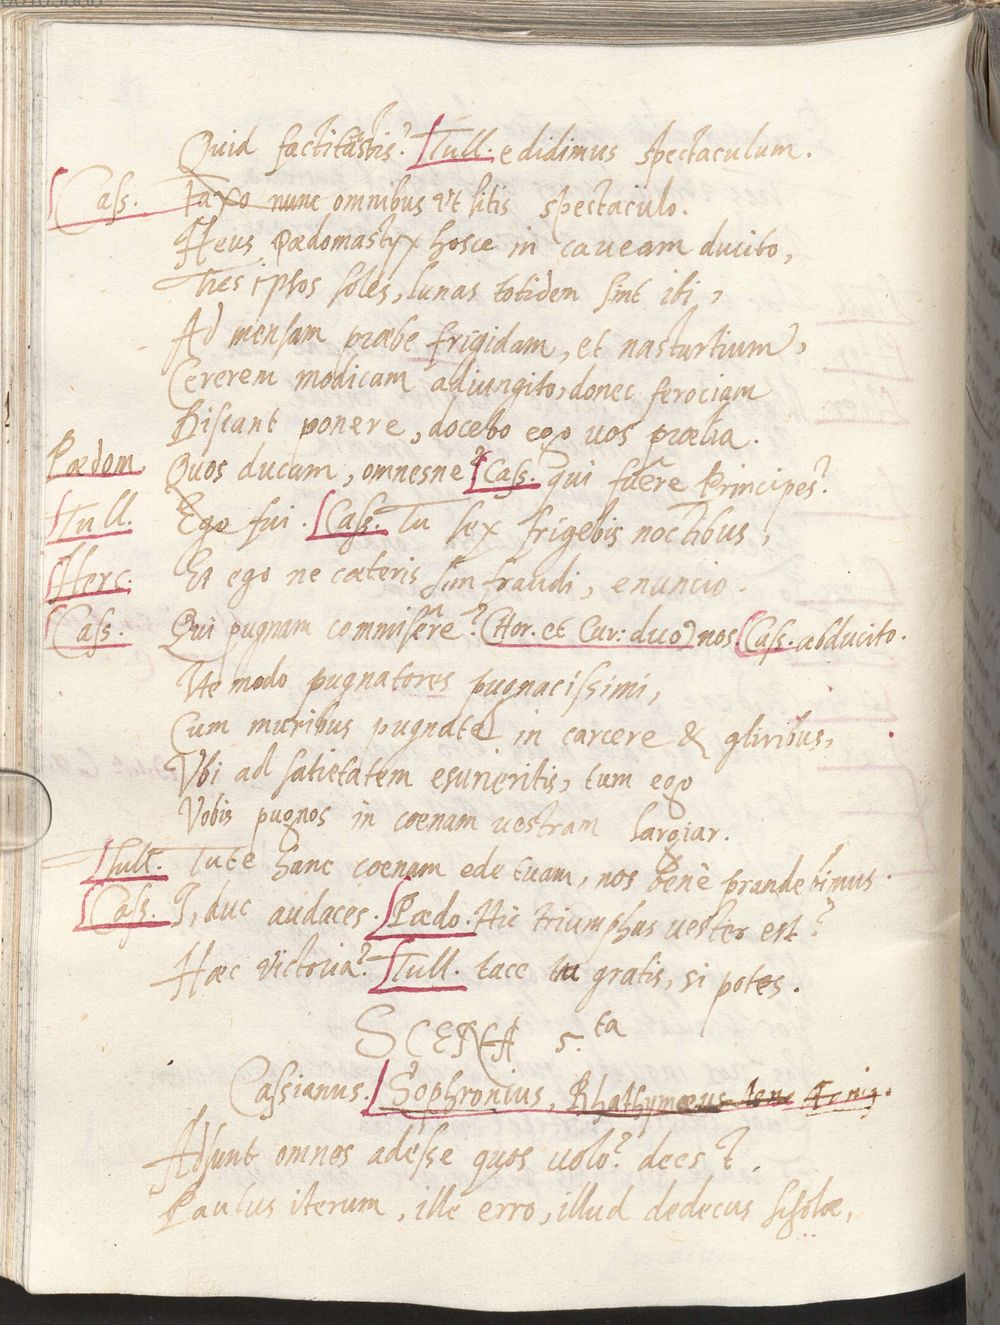 Quid factitastis? Tull. edidimus spectaculum.
Cass. Faxo nunc omnibus ut sitis spectaculo.
Heus Paedomastyx hosce in caveam ducito,
Tres ipsos soles, lunas totidem sint ibi,
Ad mensam praebe frigidam, et nasturtium,
Cererem modicam adiungito, donec ferociam
Discant ponere, docebo ego vos praelia.
Paedom. Quos ducam, omnesne? Cass. qui fuere Principes?
Tull. Ego fui. Cass. Tu sex frigebis noctibus,
Herc. Et ego ne caeteris sim fraudi, enuncio.
Cass. Qui pugnam commisere? (Hor. et Cur: duo) nos. Cass. abducito.
Ite modo pugnatores pugnacissimi,
Cum muribus pugnate in carcere & gliribus,
Ubi ad satietatem esurieritis, tum ego
Vobis pugnos in coenam vestram largiar.
Tull. Tute hanc coenam ede tuam, nos bene prandebimus.
Cass. I, duc audaces. Paedo. Hic triumphus vester est?
Haec victoria? Tull. tace tu gratis, si potes.
SCENA 5.ta
Cassianus. Sophronius, Rhathymaeus
Adsunt omnes adesse quos volo? deest.
Paulus iterum, ille erro, illud dedecus scholae,